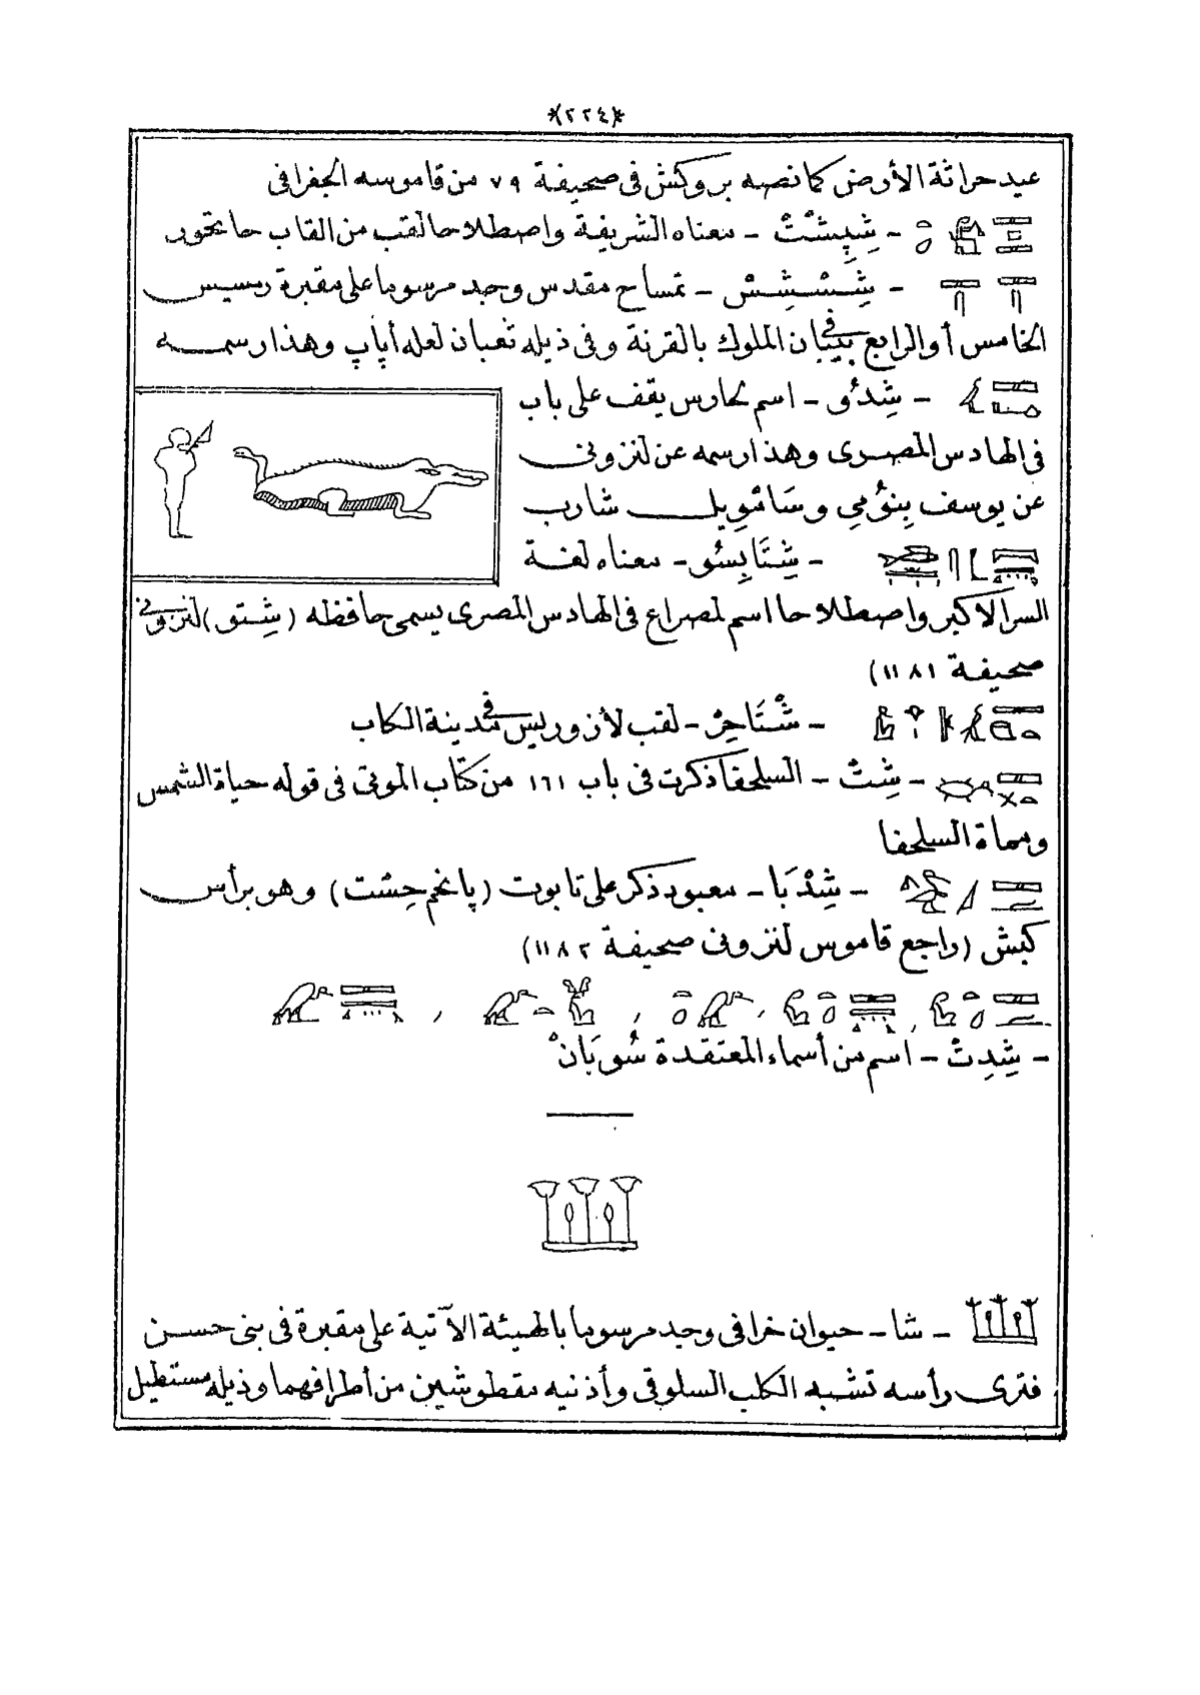 *(٢٢٤)*
عيد حراثة الأرض كما نصه بروكش فى صحيفة ٧٩ من قاموسه الجغرافى
- شِپِسْتْ - معناه الشريفة واصطلاحا لقب من القاب حاتحور
- شِسْشِسْ - تمساح مقدس وجد مرسوما على مقبرة رمسيس
الخامس أو الرابع فى بيبان الملوك بالقرنة وفى ذيله ثعبان لعله أپاپ وهذا رسمه
- شِدُو - اسم لحارس يقف على باب
فى الهادس المصرى وهذا رسمه عن لنزونى
عن يوسف بِنوُمِي وسَامْويل شارب
- شِتَابِسُو - معناه لغة
السر الاكبر واصطلاحا اسم لمصراع فى الهادس المصرى يسمى حافظه (شِتو) لنزونى
صحيفة ١١٨١)
- شْتَاحِرْ - لقب لأزوريس فى مدينة الكاب
- شِتْ - السلحفا ذكرت فى باب ١٦١ من كتاب الموتى فى قوله حياة الشمس
ومماة السلحفا
- شِدْبَا - معبود ذكر على تابوت (پانحم حِسْت) وهو برأس
كبش (راجع قاموس لنزونى صحيفة ١١٨٢)
- شِدِتْ - اسم من أسماء المعتقدة سُوبَانْ
- شا - حيوان خرافى وجد مرسوما بالهيئة الآتية على مقبرة فى بنى حسن
فترى رأسه تشبه الكلب السلوقى وأذنيه مقطوشين من أطرافهما وذيله مستطيل